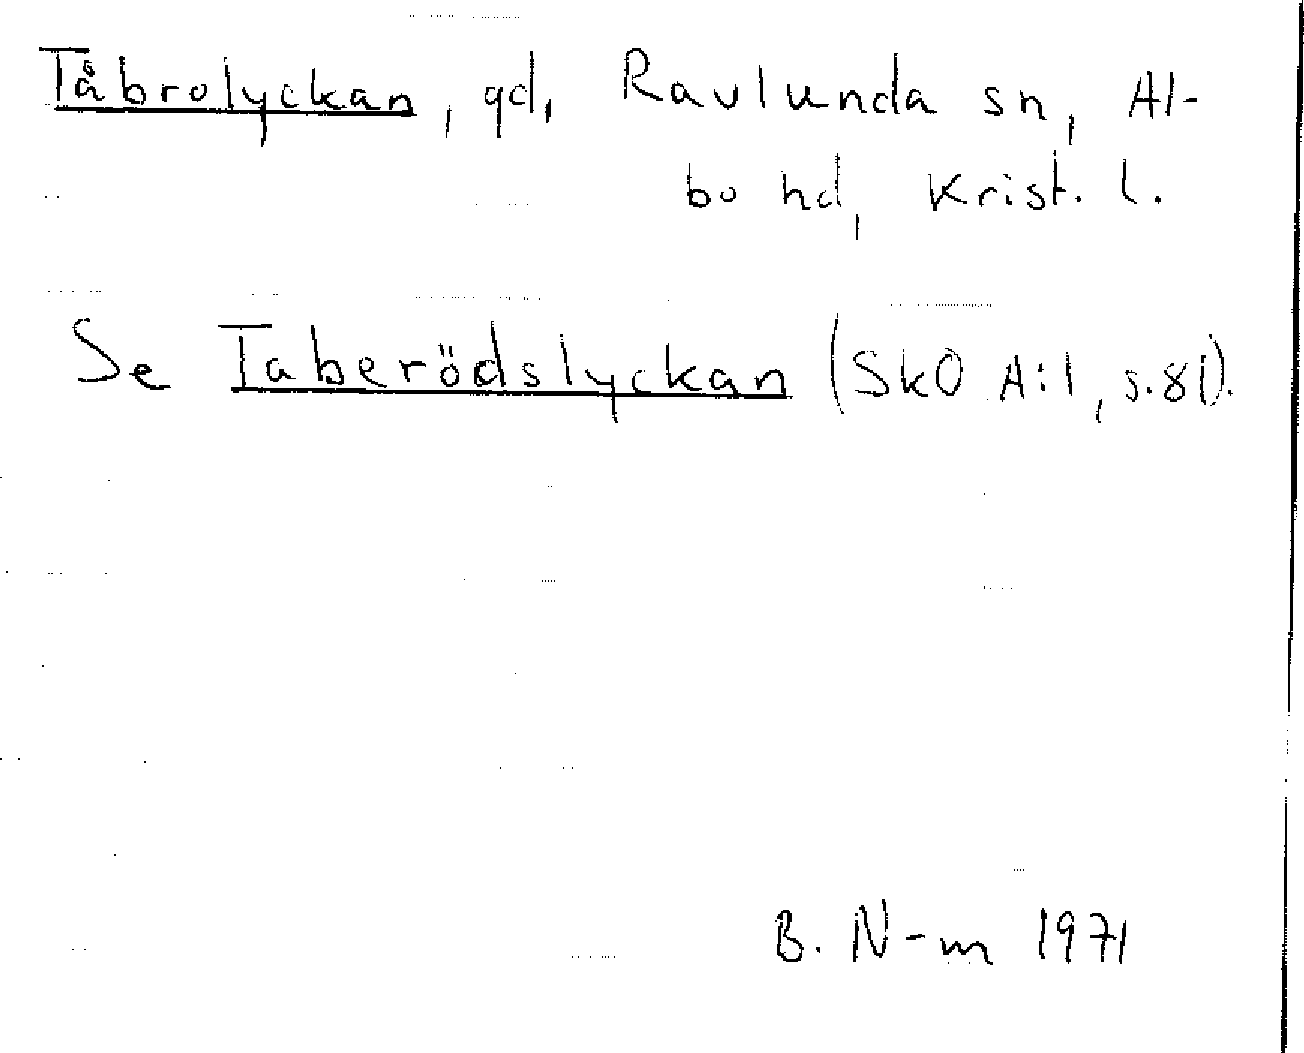 Tåbrolyckan, gd, Ravlunda sn, Al-
bo hd, Krist. l.
Se Taberödslyckan (SkO A:1, s.81).
B. N-m 1971